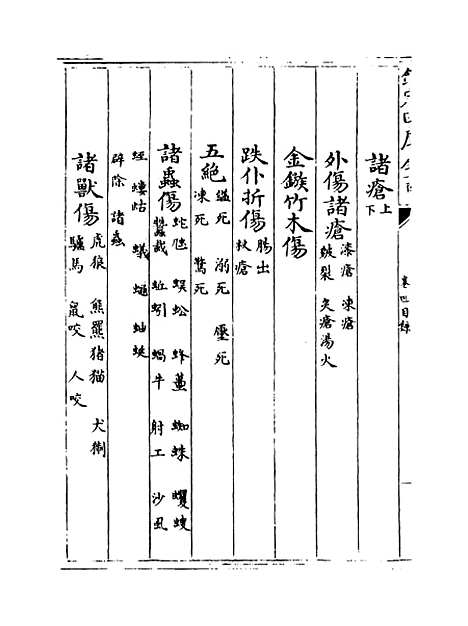 欽定四庫全書
卷四目錄
諸瘡上
下
外傷諸瘡漆瘡 凍瘡
皴裂 灸瘡湯火
金鏃竹木傷
跌仆折傷腸出
杖瘡
五絕縊死 溺死 壓死
凍死 驚死
諸蟲傷蛇虺 蜈蚣 蜂蠆 蜘蛛 蠼螋
蠶蛓 蚯蚓 蝸牛 射工 沙虱
蛭 螻蛄 蟻 蠅 蚰蜒
辟除諸蟲
諸獸傷虎狼 熊羆猪猫 犬猘
驢馬 鼠咬 人咬